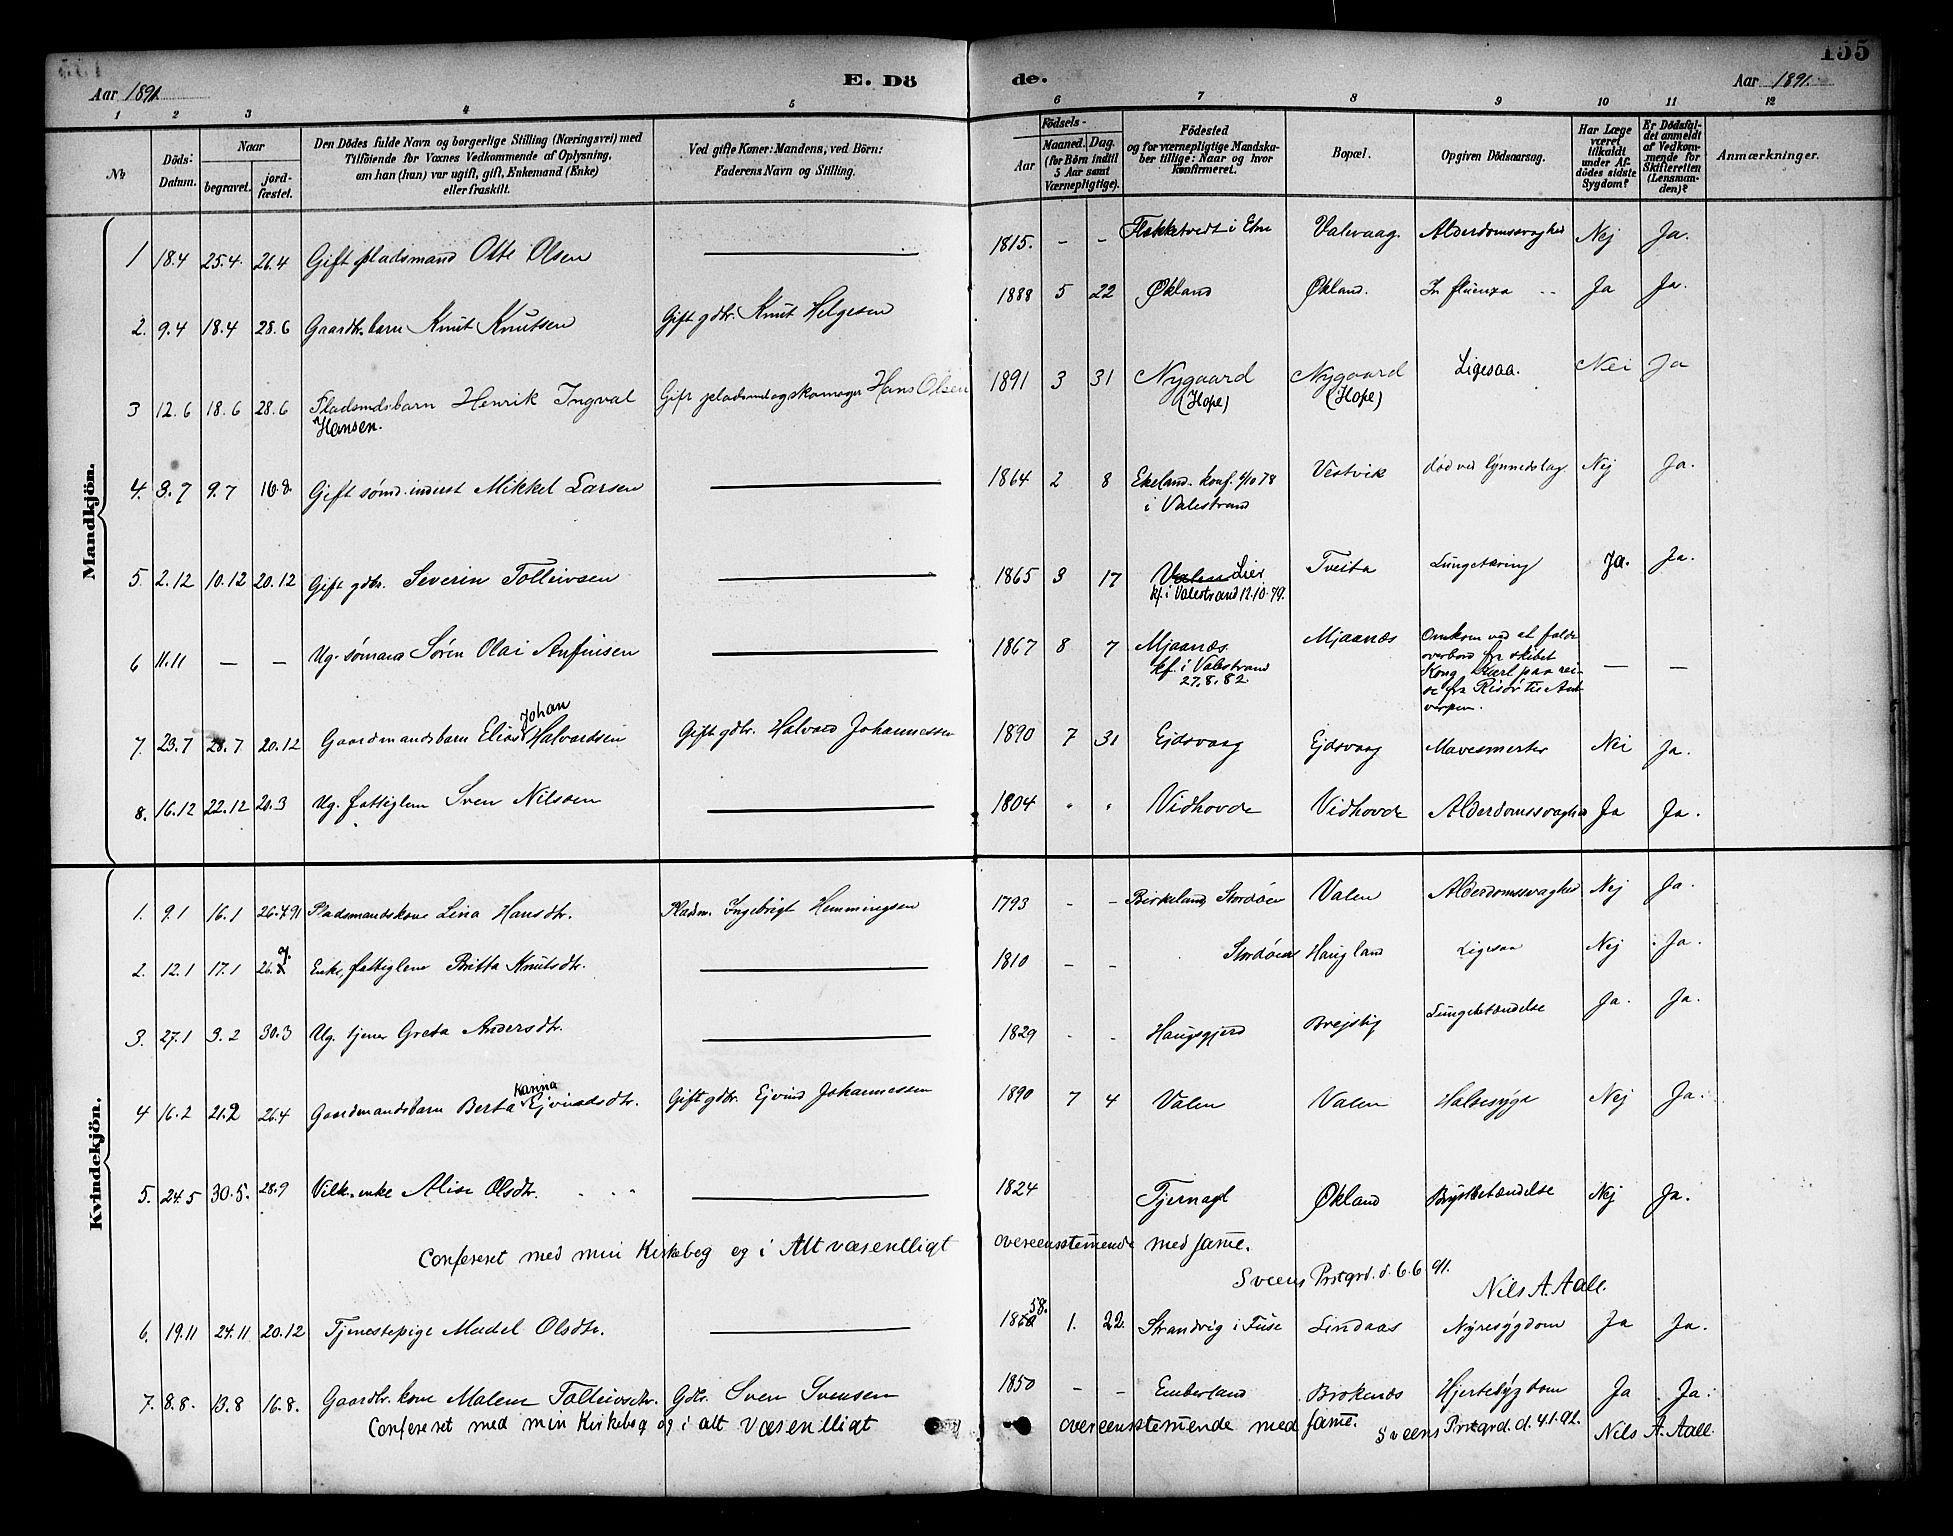 155
Aar 1891.
E. Döde.
Aar 1891.
1 2 3 4 5 6 7 8 9 10 11 12
No
Döds: Datum.
Naar
begravet.
jordfæstet.
Den Dödes fulde Navn og borgerlige Stilling (Næringsvei) med
Tilföiende for Voxnes Vedkommende af Oplysning,
om han (hun) var ugift, gift, Enkemand (Enke)
eller fraskilt.
Ved gifte Koner: Mandens, ved Börn:
Faderens Navn og Stilling.
Födsels-
Aar
Maaned. Dag.
(for Börn indtil
5 Aar samt
Værnepligtige).
Födested
og for værnepligtige Mandskaber tillige: Naar og hvor
konfirmeret.
Bopæl.
Opgiven Dödsaarsag.
Har Læge
været
tilkaldt
under Afdödes sidste
Sygdom?
Er Dödsfaldet anmeldt
af Vedkommende for
Skifteretten
(Lensmanden)?
Anmærkninger.
Mandkjön.
1 18.4 25.4. 26.4 Gift pladsmand Otte Olsen — 1815. - - Flakketvedt i Etne Valevaag. Alderdomssvaghed Nej Ja.
2. 9.4 18.4 28.6 Gaardbr. barn Knut Knutsen Gift gdbr. Knut Helgesen 1888 5 22 Økland Økland. Influenza Ja Ja.
3 12.6 18.6 28.6 Pladsmdsbarn Henrik Ingval Hansen. Gift pladsmd og skomager Hans Olsen 1891 3 31 Nygaard (Hope) Nygaard (Hope) Ligesaa. Nei Ja
4. 3.7 9.7 16.8. Gift sømd. inderst Mikkel Larsen — 1864 2 8 Ekeland konf. 6/10 78 i Valestrand Vestvik død ved lynnedslag Nej Ja.
5. 2.12 10.12 20.12 Gift gdbr. Severin Tolleivsen — 1865 3 17 Lier kf. i Valestrand 12.10.79. Tveita Lungetæring Ja. Ja.
6 11.11 — — Ug. sømand Søren Olai Anfinsen — 1867 8 7 Mjaanæs. kf. i Valestrand 27.8.82 Mjaanæs Omkom ved at falde overbord fra skibet Kong Karl paa reise fra Risør til Antverpen. — —
7. 23.7 28.7 20.12 Gaardmandsbarn Elias Johan Halvardsen Gift gdbr. Halvard Johannessen 1890 7 31 Ejdsvaag Ejdsvaag Mavesmerter Nei Ja.
8. 16.12 22.12 20.3 Ug. fattiglem Sven Nilsen — 1804 " " Vidhovde Vidhovde Alderdomssvaghed Ja Ja.
Kvindekjön.
1. 9.1 16.1 26.4 91 Pladsmandskone Lina Hansdtr. Pladsm. Ingebrigt Hemmingsen 1793 - - Birkeland, Stordøen Valen Alderdomssvaghed Nej Ja.
2. 12.1 17.1 26. Enke, fattiglem Britta Knutsdtr. — 1810 - - Stordøen Haugland Ligesaa Nej Ja.
3. 27.1 3.2 30.3 Ug. tjener Greta Andersdtr. — 1829 - - Haugsgjerd Brejslig Lungebetændelse Ja. Ja.
4 16.2 21.2 26.4 Gaardmandsbarn Berta Karina Ejvindsdtr. Gift gdbr. Ejvind Johannessen 1890 7 4 Valen Valen Halsesyge Nej Ja.
5. 24.5 30.5. 28.9 Vilk. enke Alise Olsdtr. — 1824 Tjernagl Økland Brystbetændelse Nej Ja.
Confereret med min Kirkebog og i Alt væsentligt overeensstemende med same.
Sveens Prstgrd. d. 6.6.91. Nils A. Aall.
6. 19.11 24.11 20.12 Tjenestepige Madel Olsdtr. — 1858. 1. 22. Strandvig i Fuse Lindaas Nyresygdom Ja Ja.
7. 8.8. 13.8 16.8. Gaardbr. kone Malene Tolleivsdtr. Gdbr. Sven Svensen 1850 - - Emberland Brokenæs Hjertesygdom Ja Ja.
Confereret med min Kirkebog og i alt Væsentligt overeensstemende med same.
Sveens Prstgrd. d. 4.1.92. Nils A. Aall.